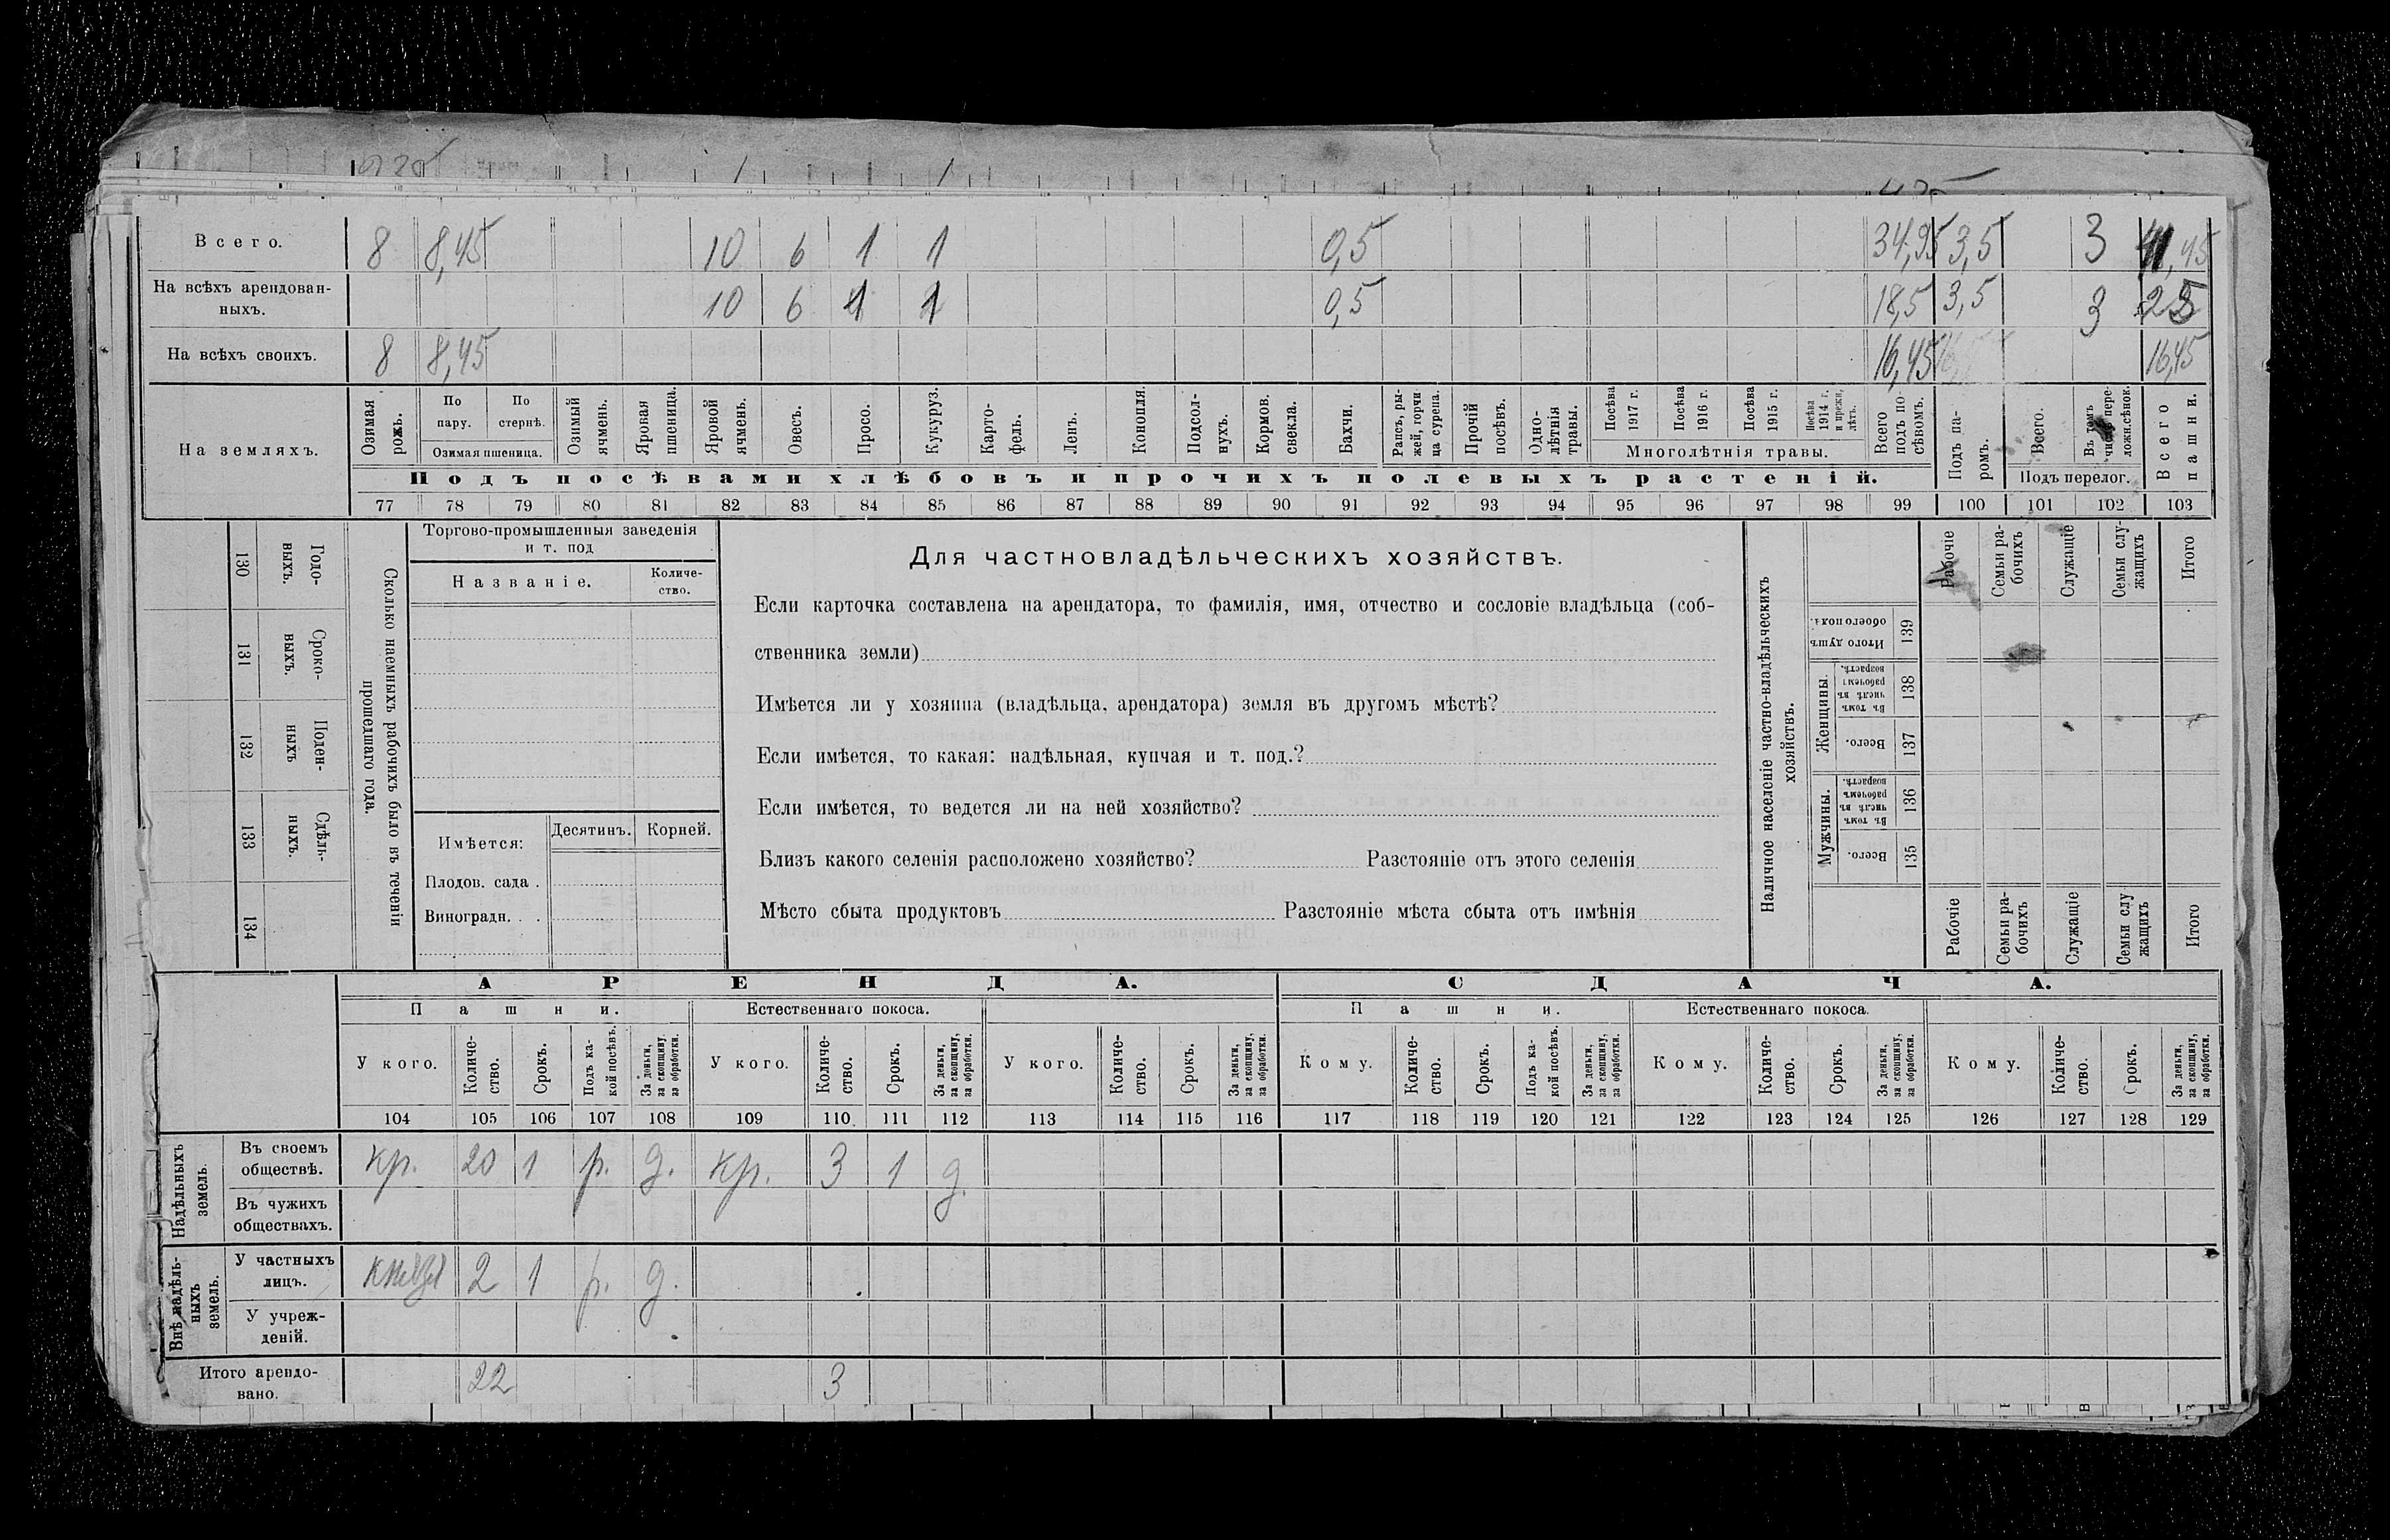 Всего. 8 8,45 10 6 1 1 0,5 34,95 3,5 3 41,45
На всѣхъ арендован-
ныхъ. 10 6 1 1 0,5 18,5 3,5 3 25
На всѣхъ своихъ. 8 8,45 16,45 16,45
На земляхъ.
Озимая рожь.
По пару.
По стернѣ.
Озимая пшеница.
Озимый ячмень.
Яровая пшеница.
Яровой ячмень.
Овесъ.
Просо.
Кукуруз.
Карто-
фель.
Ленъ.
Конопля.
Подсол-
нухъ.
Кормов.
свекла.
Бахчи.
Рапсъ, ры-
жей, горчи
ца сурепа.
Прочій
посѣвъ.
Одно-
лѣтнія
травы.
Посѣва
1917 г.
Посѣва
1916 г.
Посѣва
1915 г.
Посѣва
1914 г.
и прежн.
лѣтъ.
Многолѣтнія травы.
Всего
подъ по-
сѣвомъ.
Подъ па-
ромъ.
Всего.
Въ томъ
числѣ пере-
ложн.сѣнок.
Подъ перелог.
Всего
пашни.
Подъ посѣвами хлѣбовъ и прочихъ полевыхъ растеній.
77 78 79 80 81 82 83 84 85 86 87 88 89 90 91 92 93 94 95 96 97 98 99 100 101 102 103
130 Годо-
выхъ.
131 Сроко-
выхъ.
132 Поден-
ныхъ
133 Сдѣль-
ныхъ.
134
Сколько наемныхъ рабочихъ было въ теченіи
прошедшаго года.
Торгово-промышленныя заведенія
и т. под
Названіе.
Количе-
ство.
Имѣется: Десятинъ. Корней.
Плодов. сада .
Виноградн. . .
Для частновладѣльческихъ хозяйствъ.
Если карточка составлена на арендатора, то фамилія, имя, отчество и сословіе владѣльца (соб-
ственника земли)
Имѣется ли у хозяина (владѣльца, арендатора) земля въ другомъ мѣстѣ?
Если имѣется, то какая: надѣльная, купчая и т. под.?
Если имѣется, то ведется ли на ней хозяйство?
Близъ какого селенія расположено хозяйство? Разстояніе отъ этого селенія
Мѣсто сбыта продуктовъ Разстояніе мѣста сбыта отъ имѣнія
Наличное населеніе частно-владѣльческихъ
хозяйствъ.
Рабочіе
Семьи ра-
бочихъ
Служащіе
Семьи слу-
жащихъ
Итого
Итого душъ
обоего пола.
139
Женщины.
Въ томъ
числѣ въ
рабочемъ
возрастѣ.
138
Всего.
137
Мужчины.
Въ томъ
числѣ въ
рабочемъ
возрастѣ.
136
Всего.
135
Рабочіе
Семьи ра-
бочихъ
Служащіе
Семьи слу
жащихъ
Итого
АРЕНДА. СДАЧА.
Пашни. Естественнаго покоса. Пашни. Естественнаго покоса.
У кого.
Количе-
ство.
Срокъ.
Подъ ка-
кой посѣвъ.
За деньги,
за скопщину,
за обработки.
У кого.
Количе-
ство.
Срокъ.
За деньги,
за скопщину,
за обработки.
У кого.
Количе-
ство.
Срокъ.
За деньги,
за скопщину,
за обработки.
Кому.
Количе-
ство.
Срокъ.
Подъ ка-
кой посѣвъ.
За деньги,
за скопщину,
за обработки.
Кому.
Количе-
ство.
Срокъ.
За деньги,
за скопщину,
за обработки.
Кому.
Количе-
ство.
Срокъ.
За деньги,
за скопщину,
за обработки.
104 105 106 107 108 109 110 111 112 113 114 115 116 117 118 119 120 121 122 123 124 125 126 127 128 129
Надѣльныхъ
земель.
Въ своемъ
обществѣ. кр. 20 1 р. д. кр. 3 1 д.
Въ чужихъ
обществахъ.
Внѣ надѣль-
ныхъ
земель.
У частныхъ
лицъ. 2 1 р. д.
У учреж-
деній.
Итого арендо-
вано. 22 3